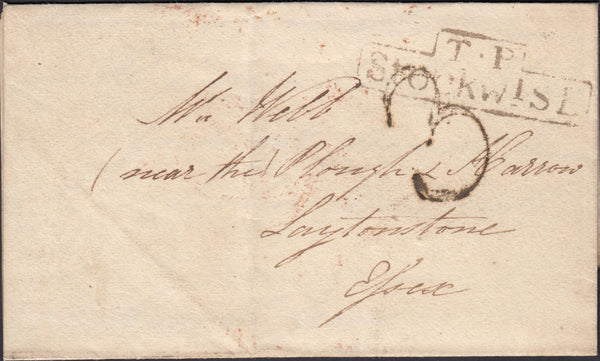 T.P
STOCKWISL
3
Mr Webb
(near the) Plough & Harrow
Laytonstone
Essex